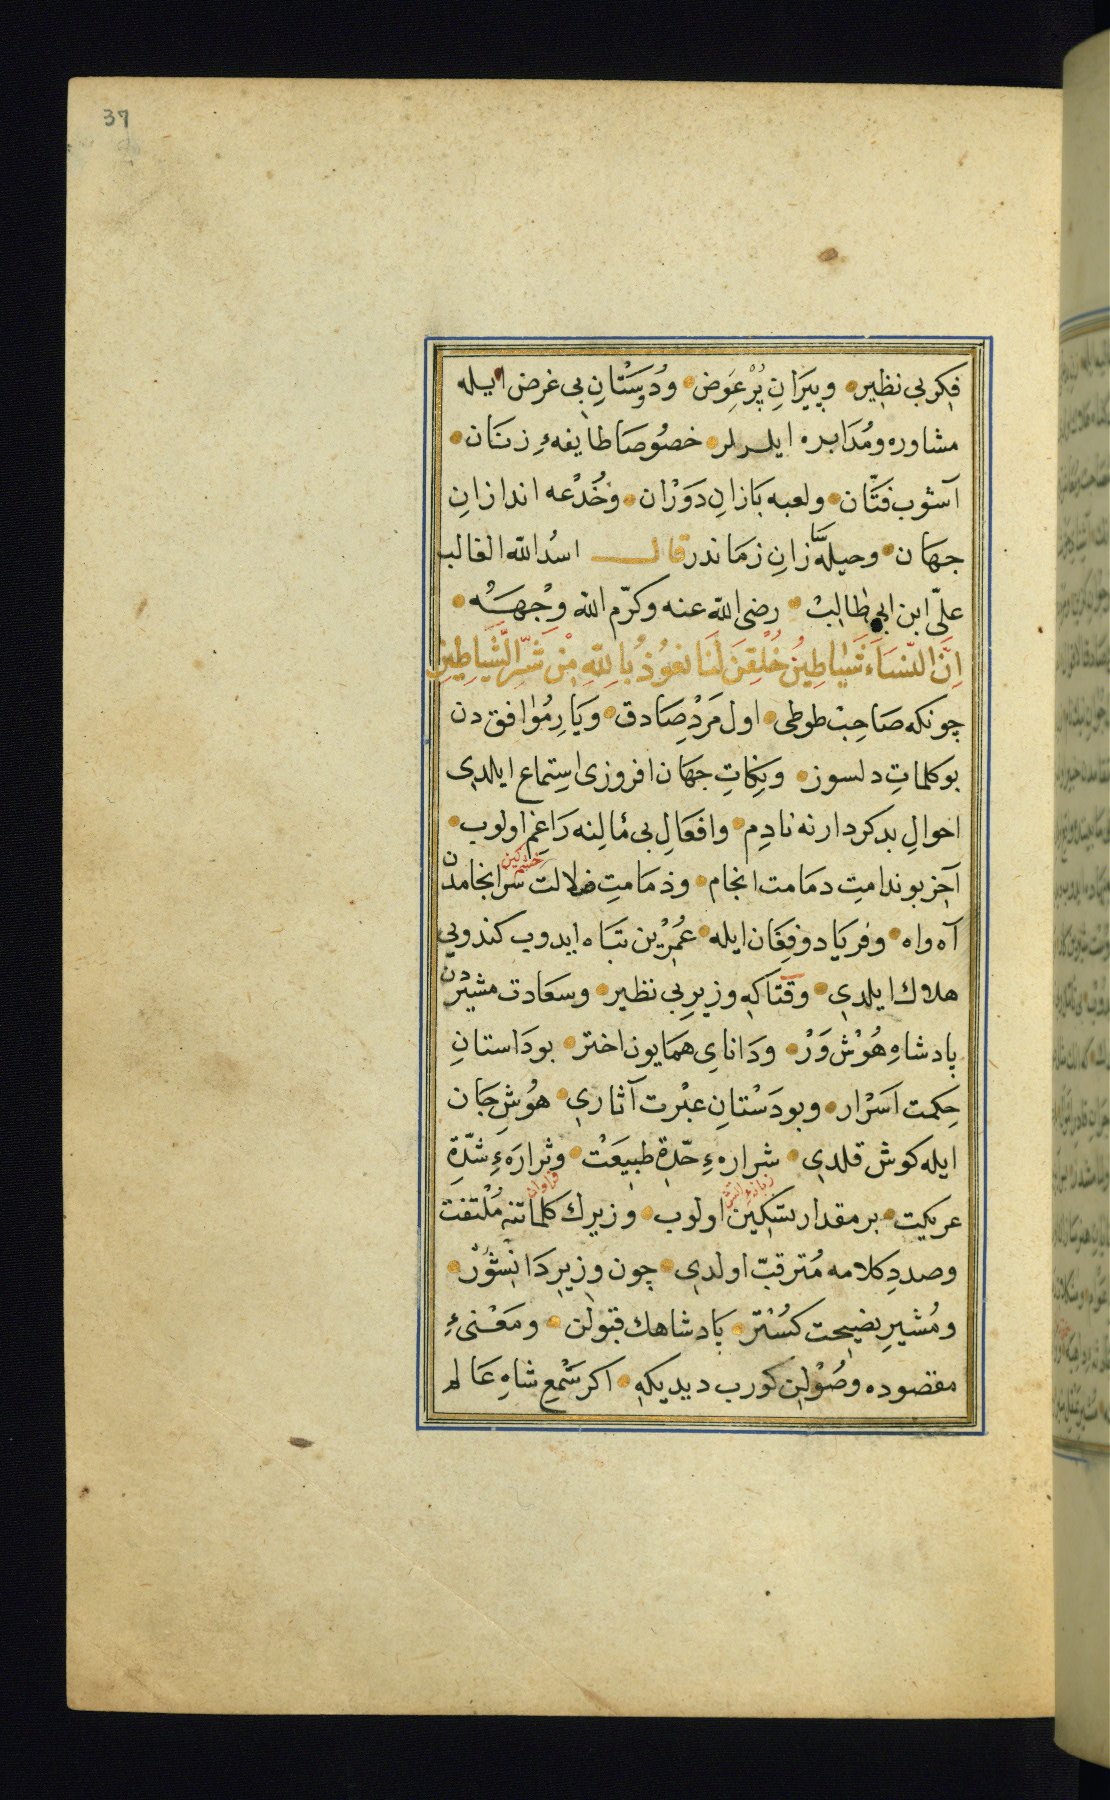 37
فِكر بی نظیر وپیَرانِ پُرْعِوَض ودُوسْتانِ بی غرض ایله
مشاوره ومُدَابره ایلرلر خصُوصَا طایفهءِ زنَان
آشوب فَتَّان ولعبه بَازانِ دَوْرَان وخُدْعه اندازانِ
جهَان وحیله سَازانِ زمَاندر قال اسدُ الله الغالب
علیّ ابن ابی طالبْ رضی الله عنه وكرّم الله وجْهَهُ
اِنَّ النّسَاَءَ شَیَاطِینُ خُلِقْنَ لَنَا نعُوذُ بُاللهِ مِنْ شَرِّ الشَّیَاطِینِ
چونكه صَاحبْ طوطی اول مَرْدِ صَادق ویَارِ مُوافق دن
بو كلماتِ دلسوز ونِكاتِ جهَان افروزی استِماع ایلدی
احوالِ بدكردارنه نادِم وافعَالِ بی مٔالِنه رَاغِم اولوب
آخِر بو ندامتِ دمَامت انجام وذمَامتِ ضلالت سَرانجامدن
خشم كین
آه واه وفریَاد وفِغَان ایله عُمُرْین تبَاه ایدوب كندویی
هلاك ایلدی وقتَاكه وزیرِ بی نظیر وسعَادت مشیردن
پادشاهِ هُوْش وَرْ ودَانایِ همَایون اختر بو دَاستانِ
حِكمت اسَرْار وبو دَسْتانِ عبْرت آثاری هوُشِ جَان
ایله كوش قلدی شراره ءِ حّدِّةِ طبِیعَتْ وشرارَهءِ شدّةِ
زبانهء آتش
فراوان
عریكیت بر مقدار تسَكِین اولوب وزیرك كلماتنه مُلْتفت
وصددِ كلامه مُترقبّ اولدی چون وزیرِ دَانِشْوَرْ
ومُشیرِ نصِیحت كسُتر پادشاهك قبولن ومَعْنیءِ
مقصوده وصُوْلِن كورب دیدیكه اكر سْمعِ شاهِ عَالم